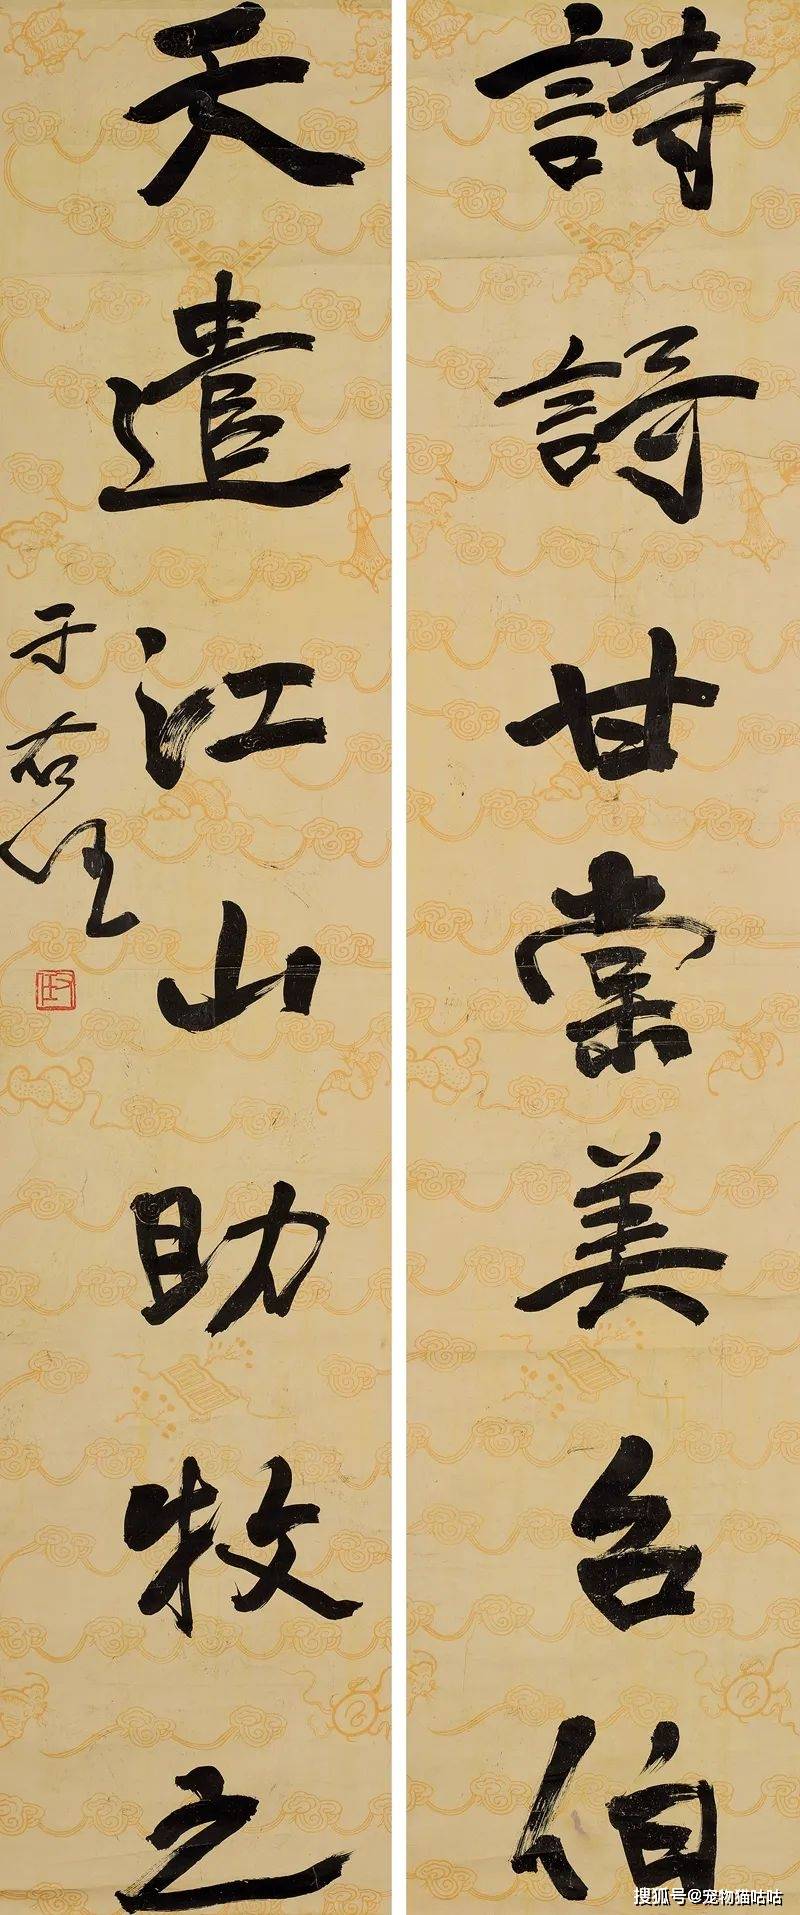 詩謌甘棠美召伯
天遣江山助牧之
于右任
右任
搜狐号@宠物猫咕咕